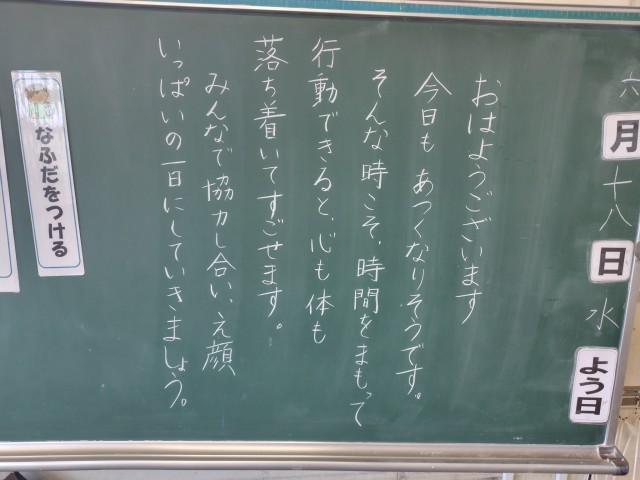 六月十八日水よう日
おはようございます
今日も あつくなりそうです。
そんな時こそ、時間をまもって
行動できると、心も体も
落ち着いてすごせます。
みんなで協力し合い、え顔
いっぱいの一日にしていきましょう。
なふだをつける